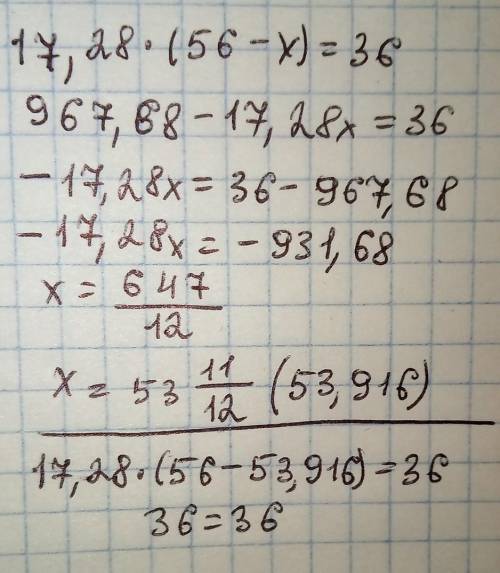 17,28·(56-x)=36
967,68-17,28x=36
-17,28x=36-967,68
-17,28x=-931,68
x=647/12
x=53 11/12 (53,916)
17,28·(56-53,916)=36
36=36